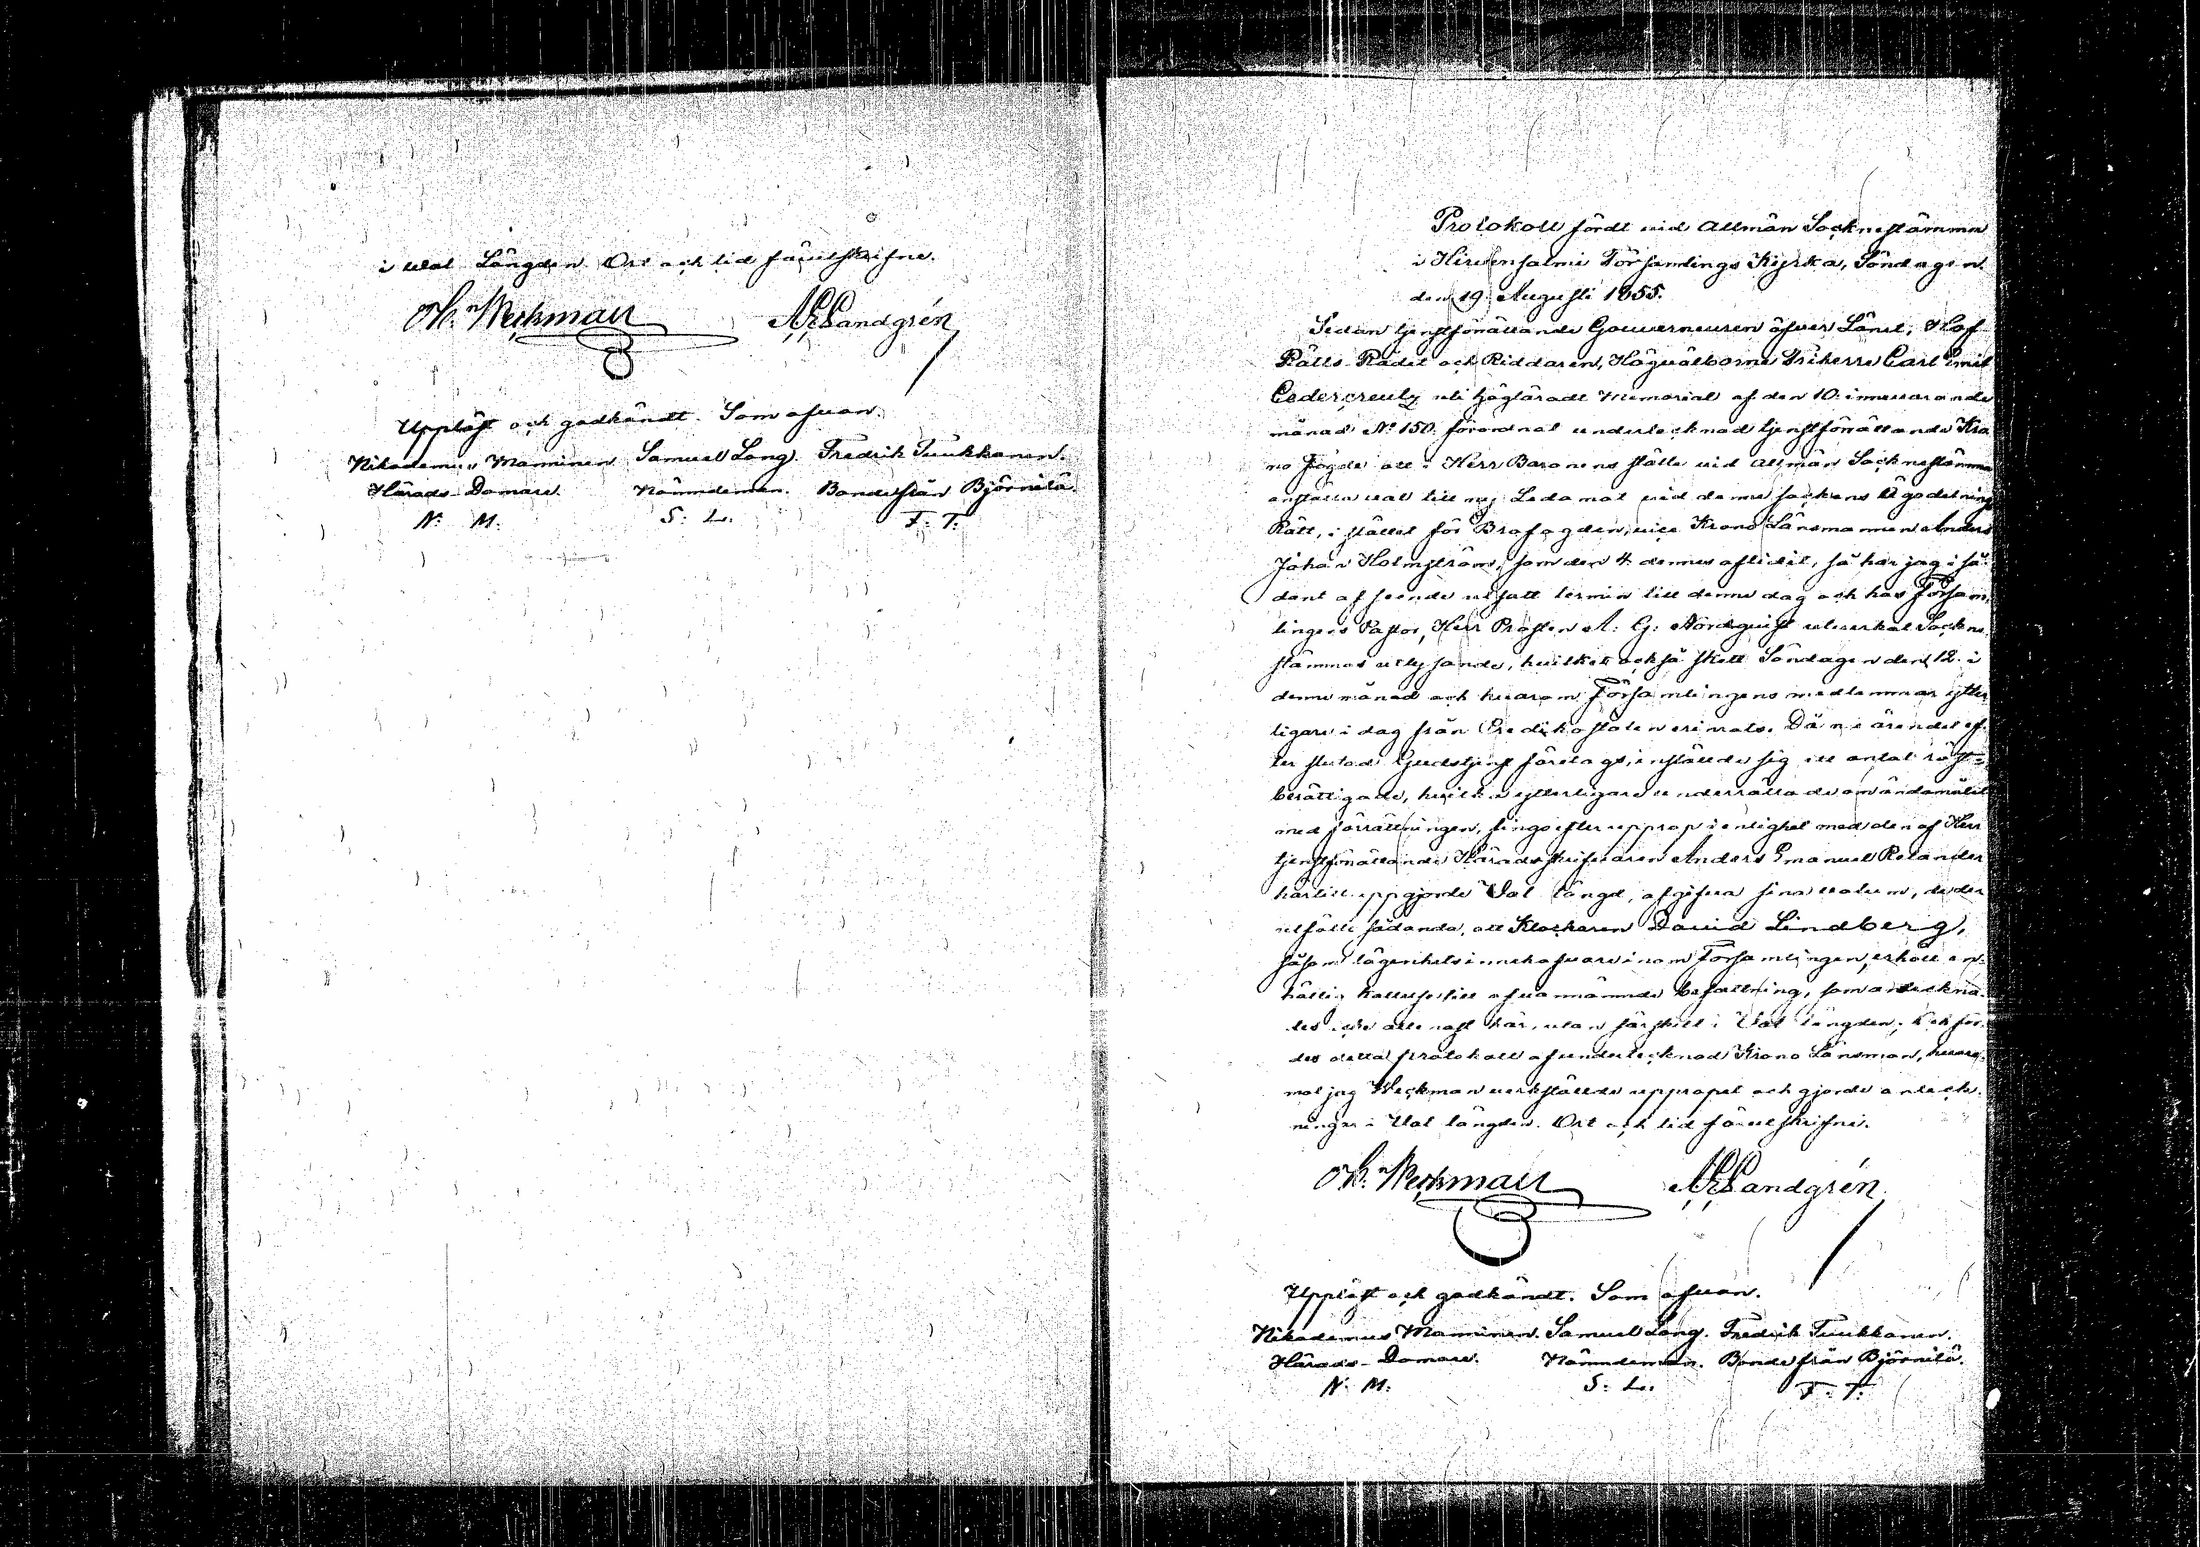 i Wal Längden. Ort och tid förutskrifne.
Weckman Sandgrén
Uppläst och godkändt. Som ofvan.
Nikodemus Manninen Samuel Lang. Fredrik Tuukkanen.
Härads-Domare. Nämndeman. Bonde från Björnilä.
N. M. S: L. F: T.
Protokoll fördt vid Allmän Sockneslämma
i Hirvensalmi Församlings Kyrka, Söndagen
den 19 Augusti 1855.
Sedan tjenstförrättande Gouverneuren öfver Länet, Hof-
Rätts-Rådet och Riddaren, Högvälborne Friherre Carl Emil
Cedercreutz uti högläradt Memorial af den 10. innevarande
månad N:o 150. förordnat undertecknad tjenstförrättande Kro-
no Fogde att i Herr Baronens ställe vid allmän Sockneslämma
anställa val till ny Ledamot vid denne sockens Ägodelnings
Rätt, i stället för Brofogden, vice Krono Länsmannen Anders
Johan Holmström, som den 4 dennes aflidit, så har jag i så-
dant afseende utsatt termin till denne dag och har Försam-
lingens Pastor, Herr Prosten A: G: Nordqvist utverkat Sockne-
stämmas utlysande, hvilket också skett Söndagen den 12. i
denne månad och hvarom Församlingens medlemmar ytter
ligare i dag från Predikostolen erinrats. Då nu ärendet ef-
ter slutad Gudstjenst företogs, inställde sig ett antal röst-
berättigade, hvilka ytterligare underrättade om ändamålet
med förrättningen, fingo efter upprop i enlighet med den af Herr
tjenstförrättande Häradsskrifvaren Anders Emanuel Relander
härtill uppgjorde Val längd, afgifva sina vota, de der
utföllo sådande, att Klockaren David Lindberg,
såsom lägenhets innehafvare inom Församlingen, erhöll en-
hällig kallelse till ofvannämnde befattning, som antekna-
des icke allenast här, utan särskilt i Val längden; och för-
des detta protokoll af undertecknad Krono Länsman, hvare-
mot jag Weckman verkställde uppropet och gjorde anteck-
ningar i Val längden. Ort och tid förutskrifne.
Weckman Sandgrén
Uppläst och godkändt. Som ofvan.
Nikodemus Manninen. Samuel Lang. Fredrik Tuukkanen.
Härads-Domare. Nämndeman. Bonde från Björnilä.
N. M. S: L. F: T.